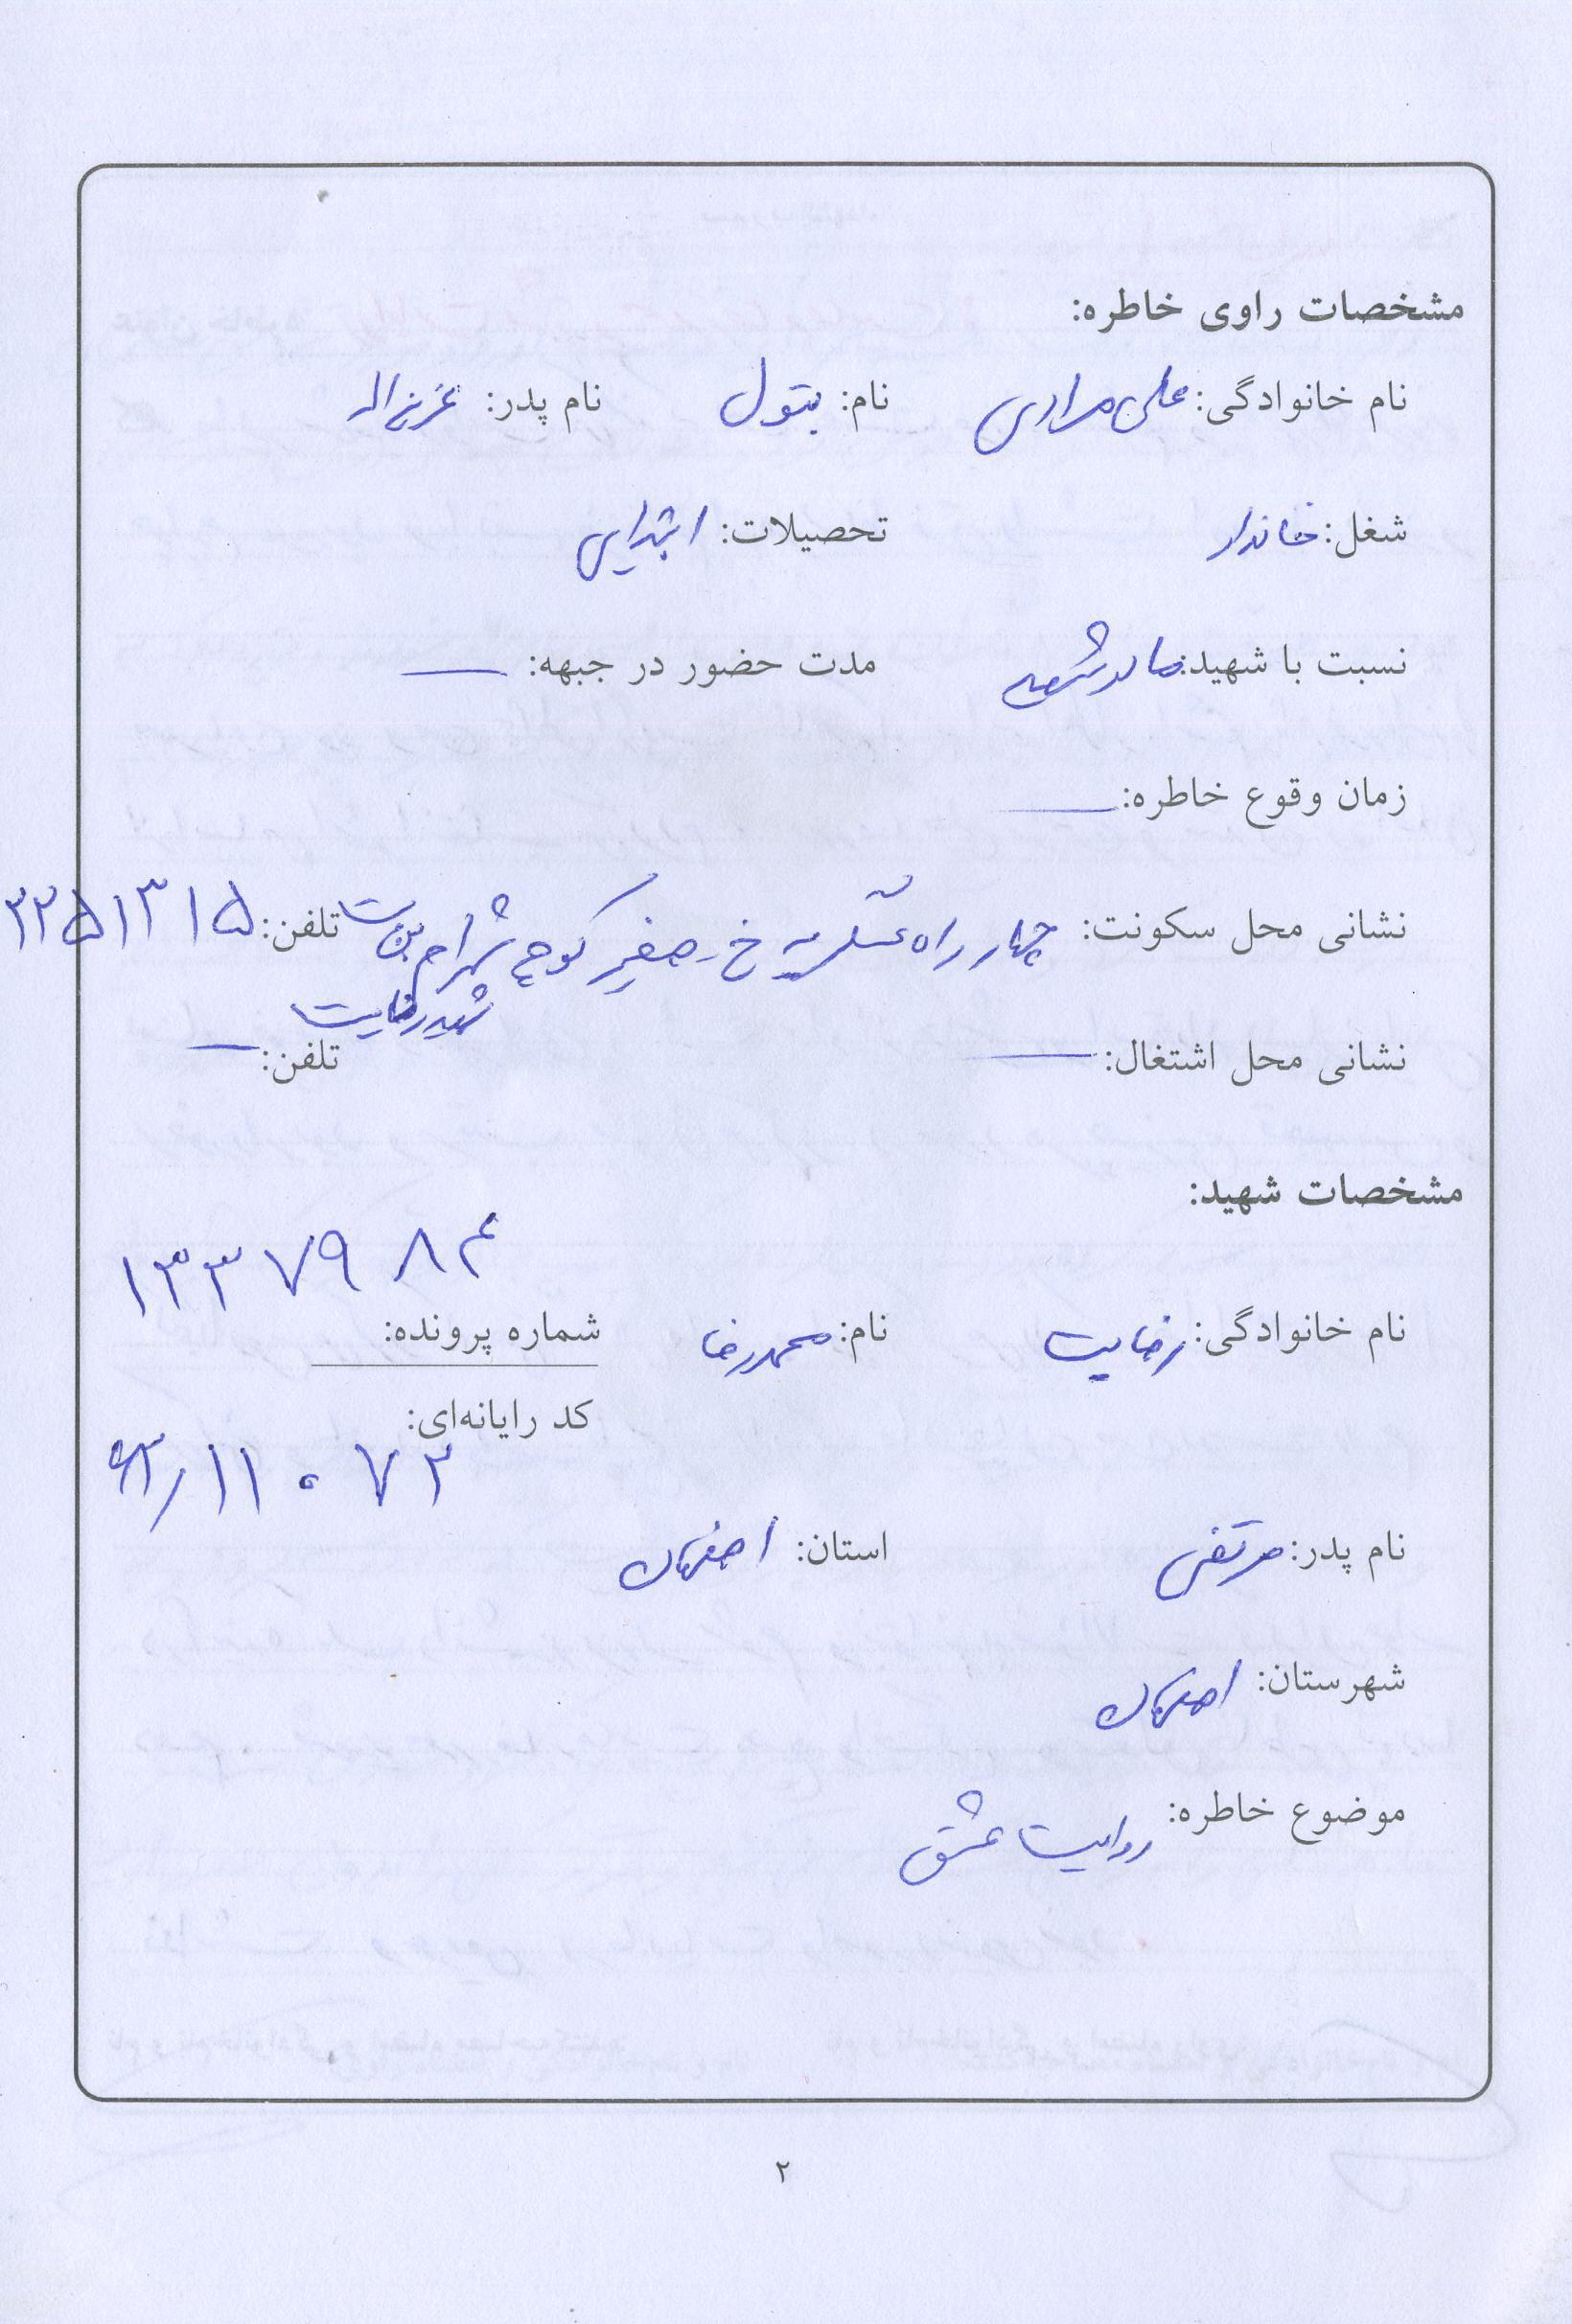 مشخصات راوی خاطره:
نام خانوادگی: علی مرادی نام: بتول نام پدر: عزیزاله
شغل: خانه‌دار تحصیلات: ابتدایی
نسبت با شهید: مادر شهید مدت حضور در جبهه: ـــ
زمان وقوع خاطره: ـــ
نشانی محل سکونت: چهارراه عسگریه خ-صغیر کوچه شهرام بن بست تلفن: ۲۲۵۱۳۱۵
شهید رضایت
نشانی محل اشتغال: ـــ تلفن: ـــ
مشخصات شهید:
۱۳۳۷۹۸۴
نام خانوادگی: رضایت نام: محمدرضا شماره پرونده:
کد رایانه‌ای:
۶۳/۱۱۰۷۲
نام پدر: مرتضی استان: اصفهان
شهرستان: اصفهان
موضوع خاطره: روایت عشق
۲